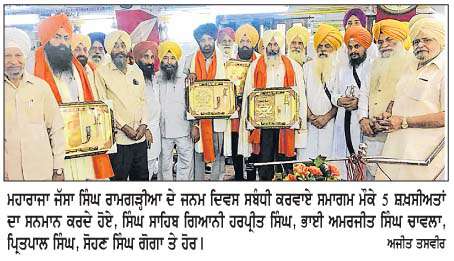 ਮਹਾਰਾਜਾ ਜੱਸਾ ਸਿੰਘ ਰਾਮਗੜ੍ਹੀਆ ਦੇ ਜਨਮ ਦਿਵਸ ਸਬੰਧੀ ਕਰਵਾਏ ਸਮਾਗਮ ਮੌਕੇ 5 ਸ਼ਖ਼ਸੀਅਤਾਂ
ਦਾ ਸਨਮਾਨ ਕਰਦੇ ਹੋਏ, ਸਿੰਘ ਸਾਹਿਬ ਗਿਆਨੀ ਹਰਪ੍ਰੀਤ ਸਿੰਘ, ਭਾਈ ਅਮਰਜੀਤ ਸਿੰਘ ਚਾਵਲਾ,
ਪ੍ਰਿਤਪਾਲ ਸਿੰਘ, ਸੋਹਣ ਸਿੰਘ ਗੋਗਾ ਤੇ ਹੋਰ। ਅਜੀਤ ਤਸਵੀਰ